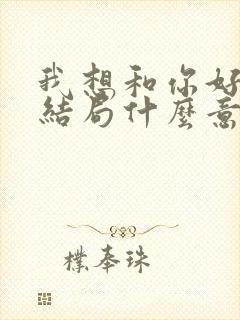 我想和你好
結局什麼意
樸奉珠